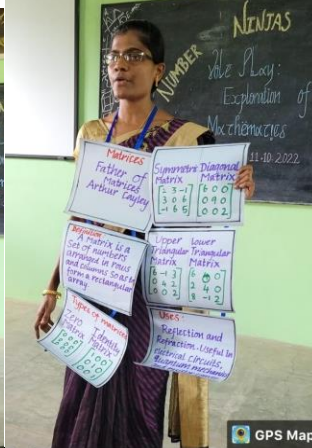 NINJAS
NUMBER
Role Play:
Exploration of
Mathematics
11-10-2022
Matrices
Father of
Matrices
Arthur Cayley
Symmetric
Matrix
2 3 -1
3 0 6
-1 6 5
Diagonal
Matrix
6 0 0
0 9 0
0 0 2
Definition
A Matrix is a
Set of numbers
arranged in rows
and columns so as to
form a rectangular
array.
Upper
Triangular
Matrix
6 -1 3
0 4 2
0 0 2
Lower
Triangular
Matrix
6 0 0
2 4 0
8 -1 2
Types of matrices
Zero
Matrix
Identity
Matrix
Uses:
Reflection and
Refraction. Useful in
electrical circuits,
quantum mechanics
GPS Map